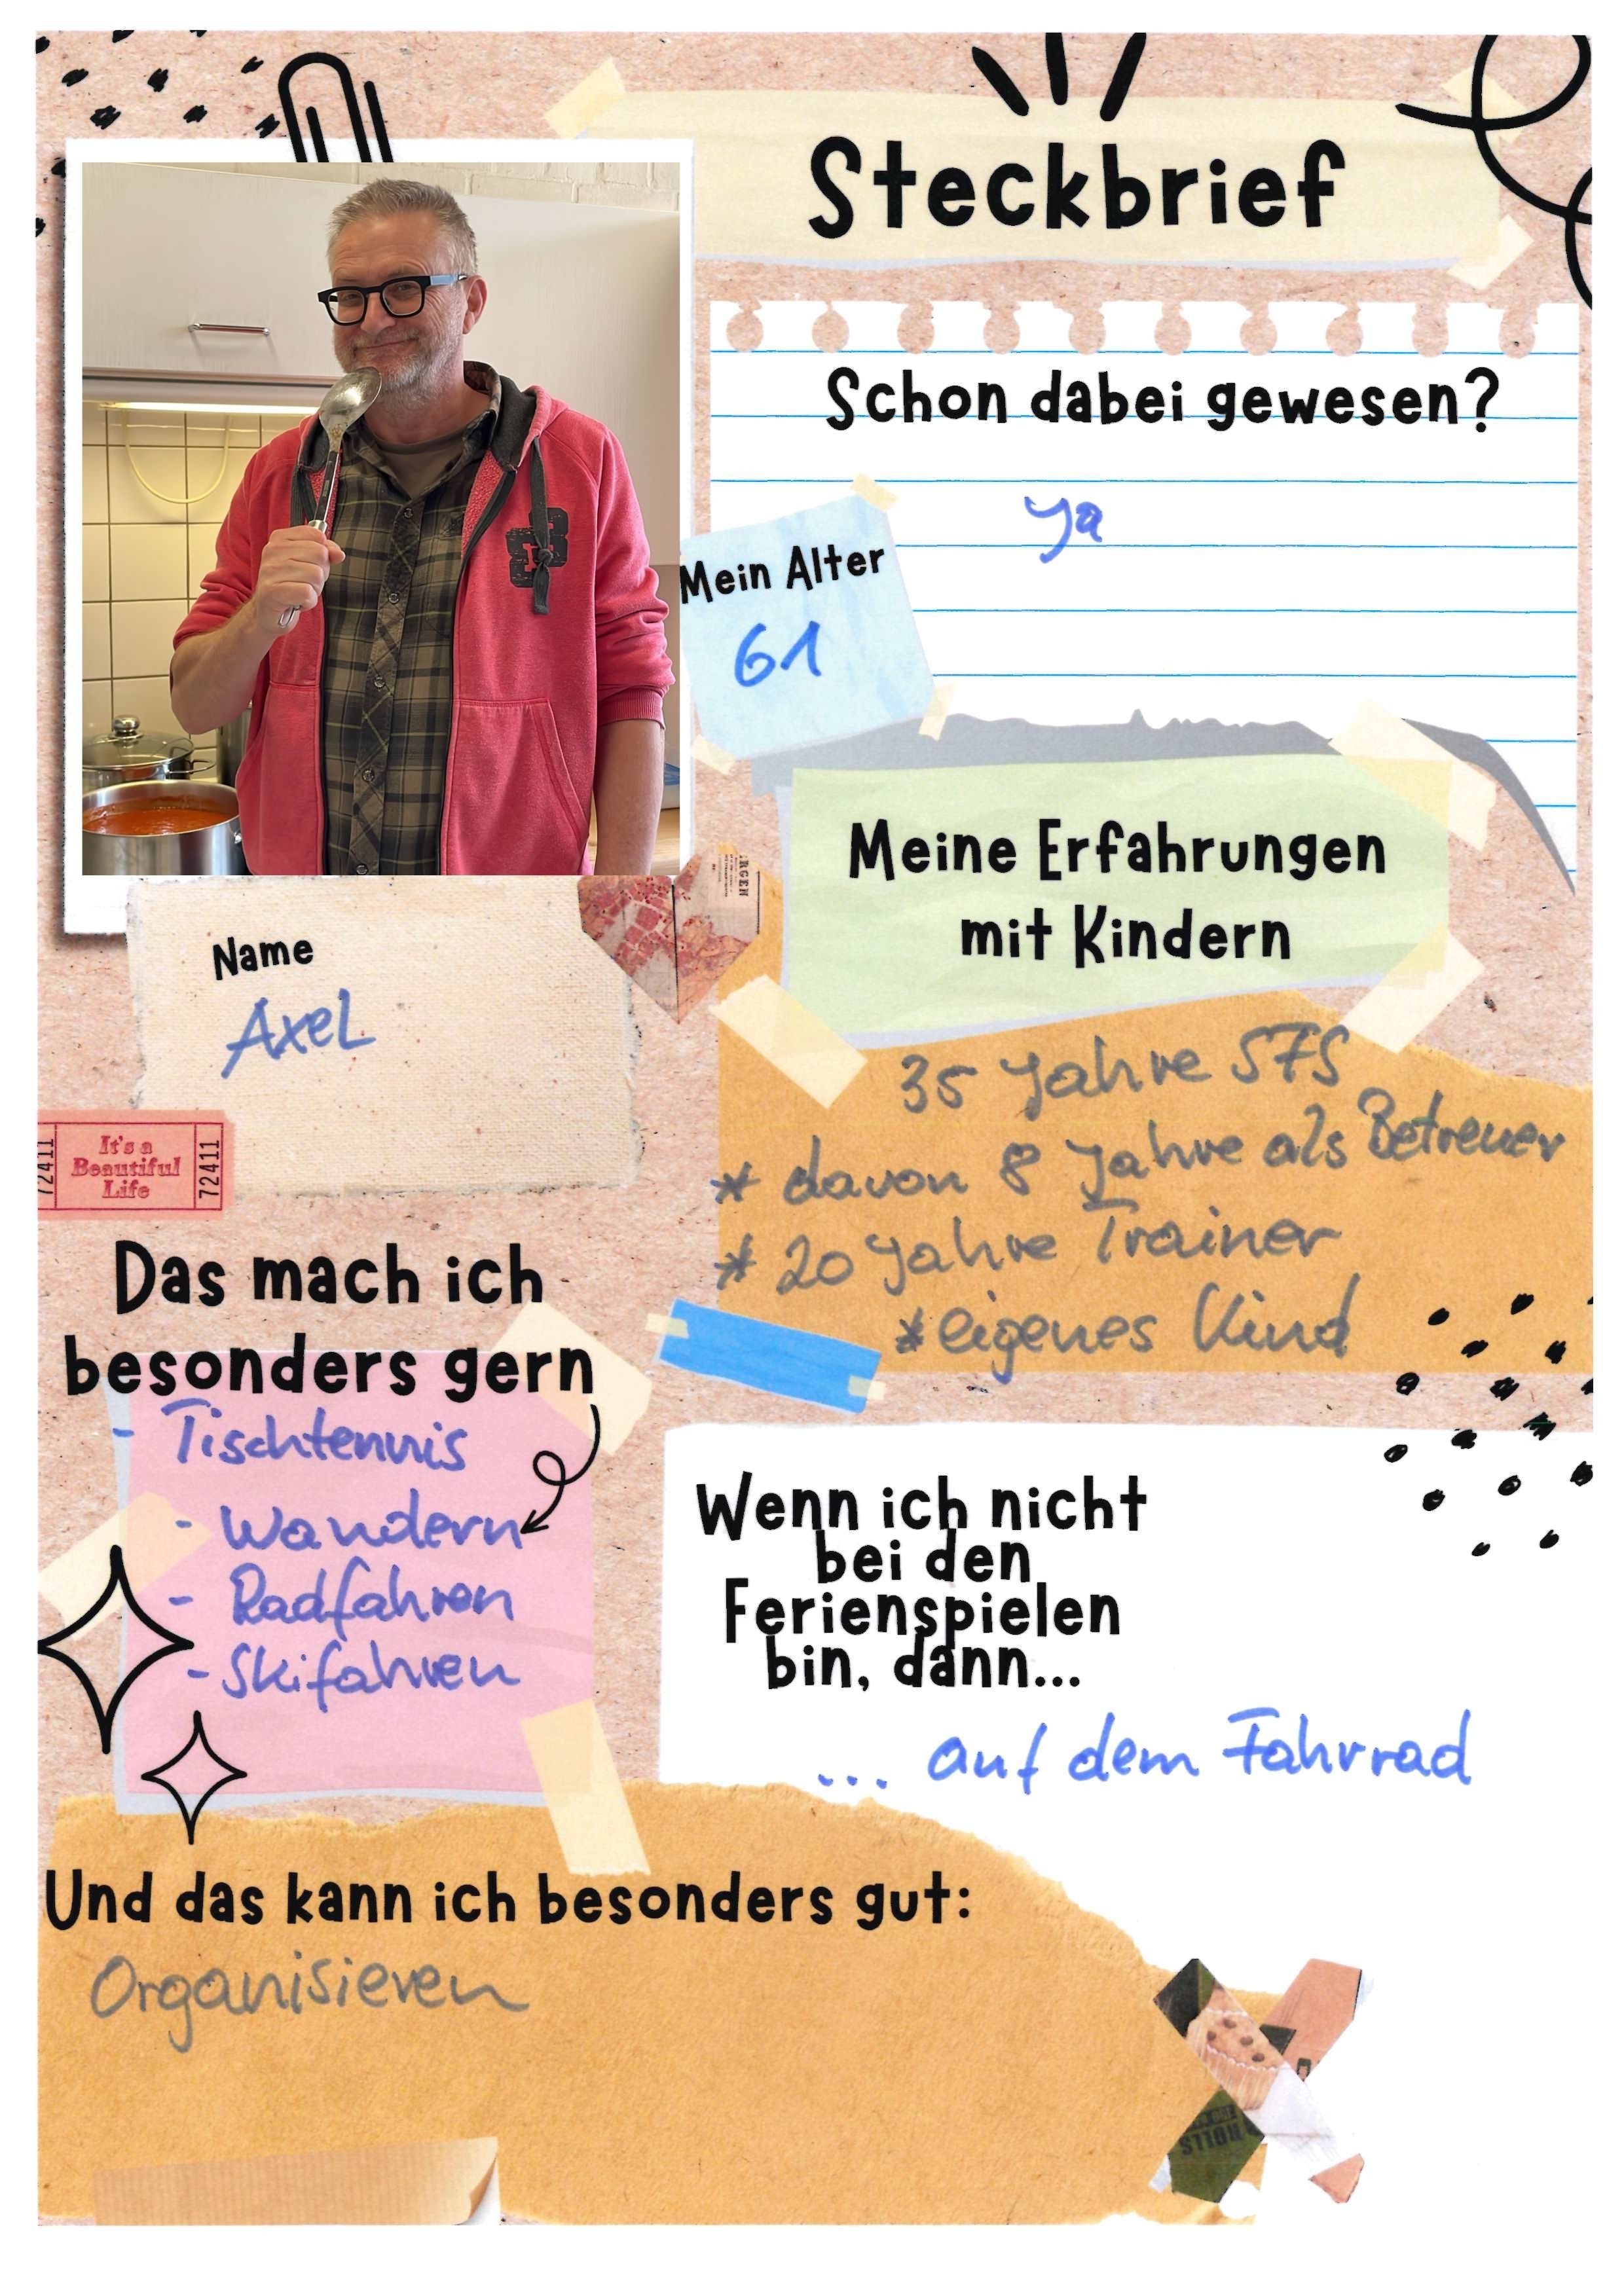 Steckbrief
Schon dabei gewesen?
Ja
Mein Alter
61
Meine Erfahrungen
mit Kindern
35 Jahre SFS
* davon 8 Jahre als Betreuer
* 20 Jahre Trainer
* eigenes Kind
Name
Axel
It's a
Beautiful
Life
72411
72411
Das mach ich
besonders gern
- Tischtennis
- Wandern
- Radfahren
- Skifahren
Wenn ich nicht
bei den
Ferienspielen
bin, dann...
... auf dem Fahrrad
Und das kann ich besonders gut:
Organisieren
ROLLS